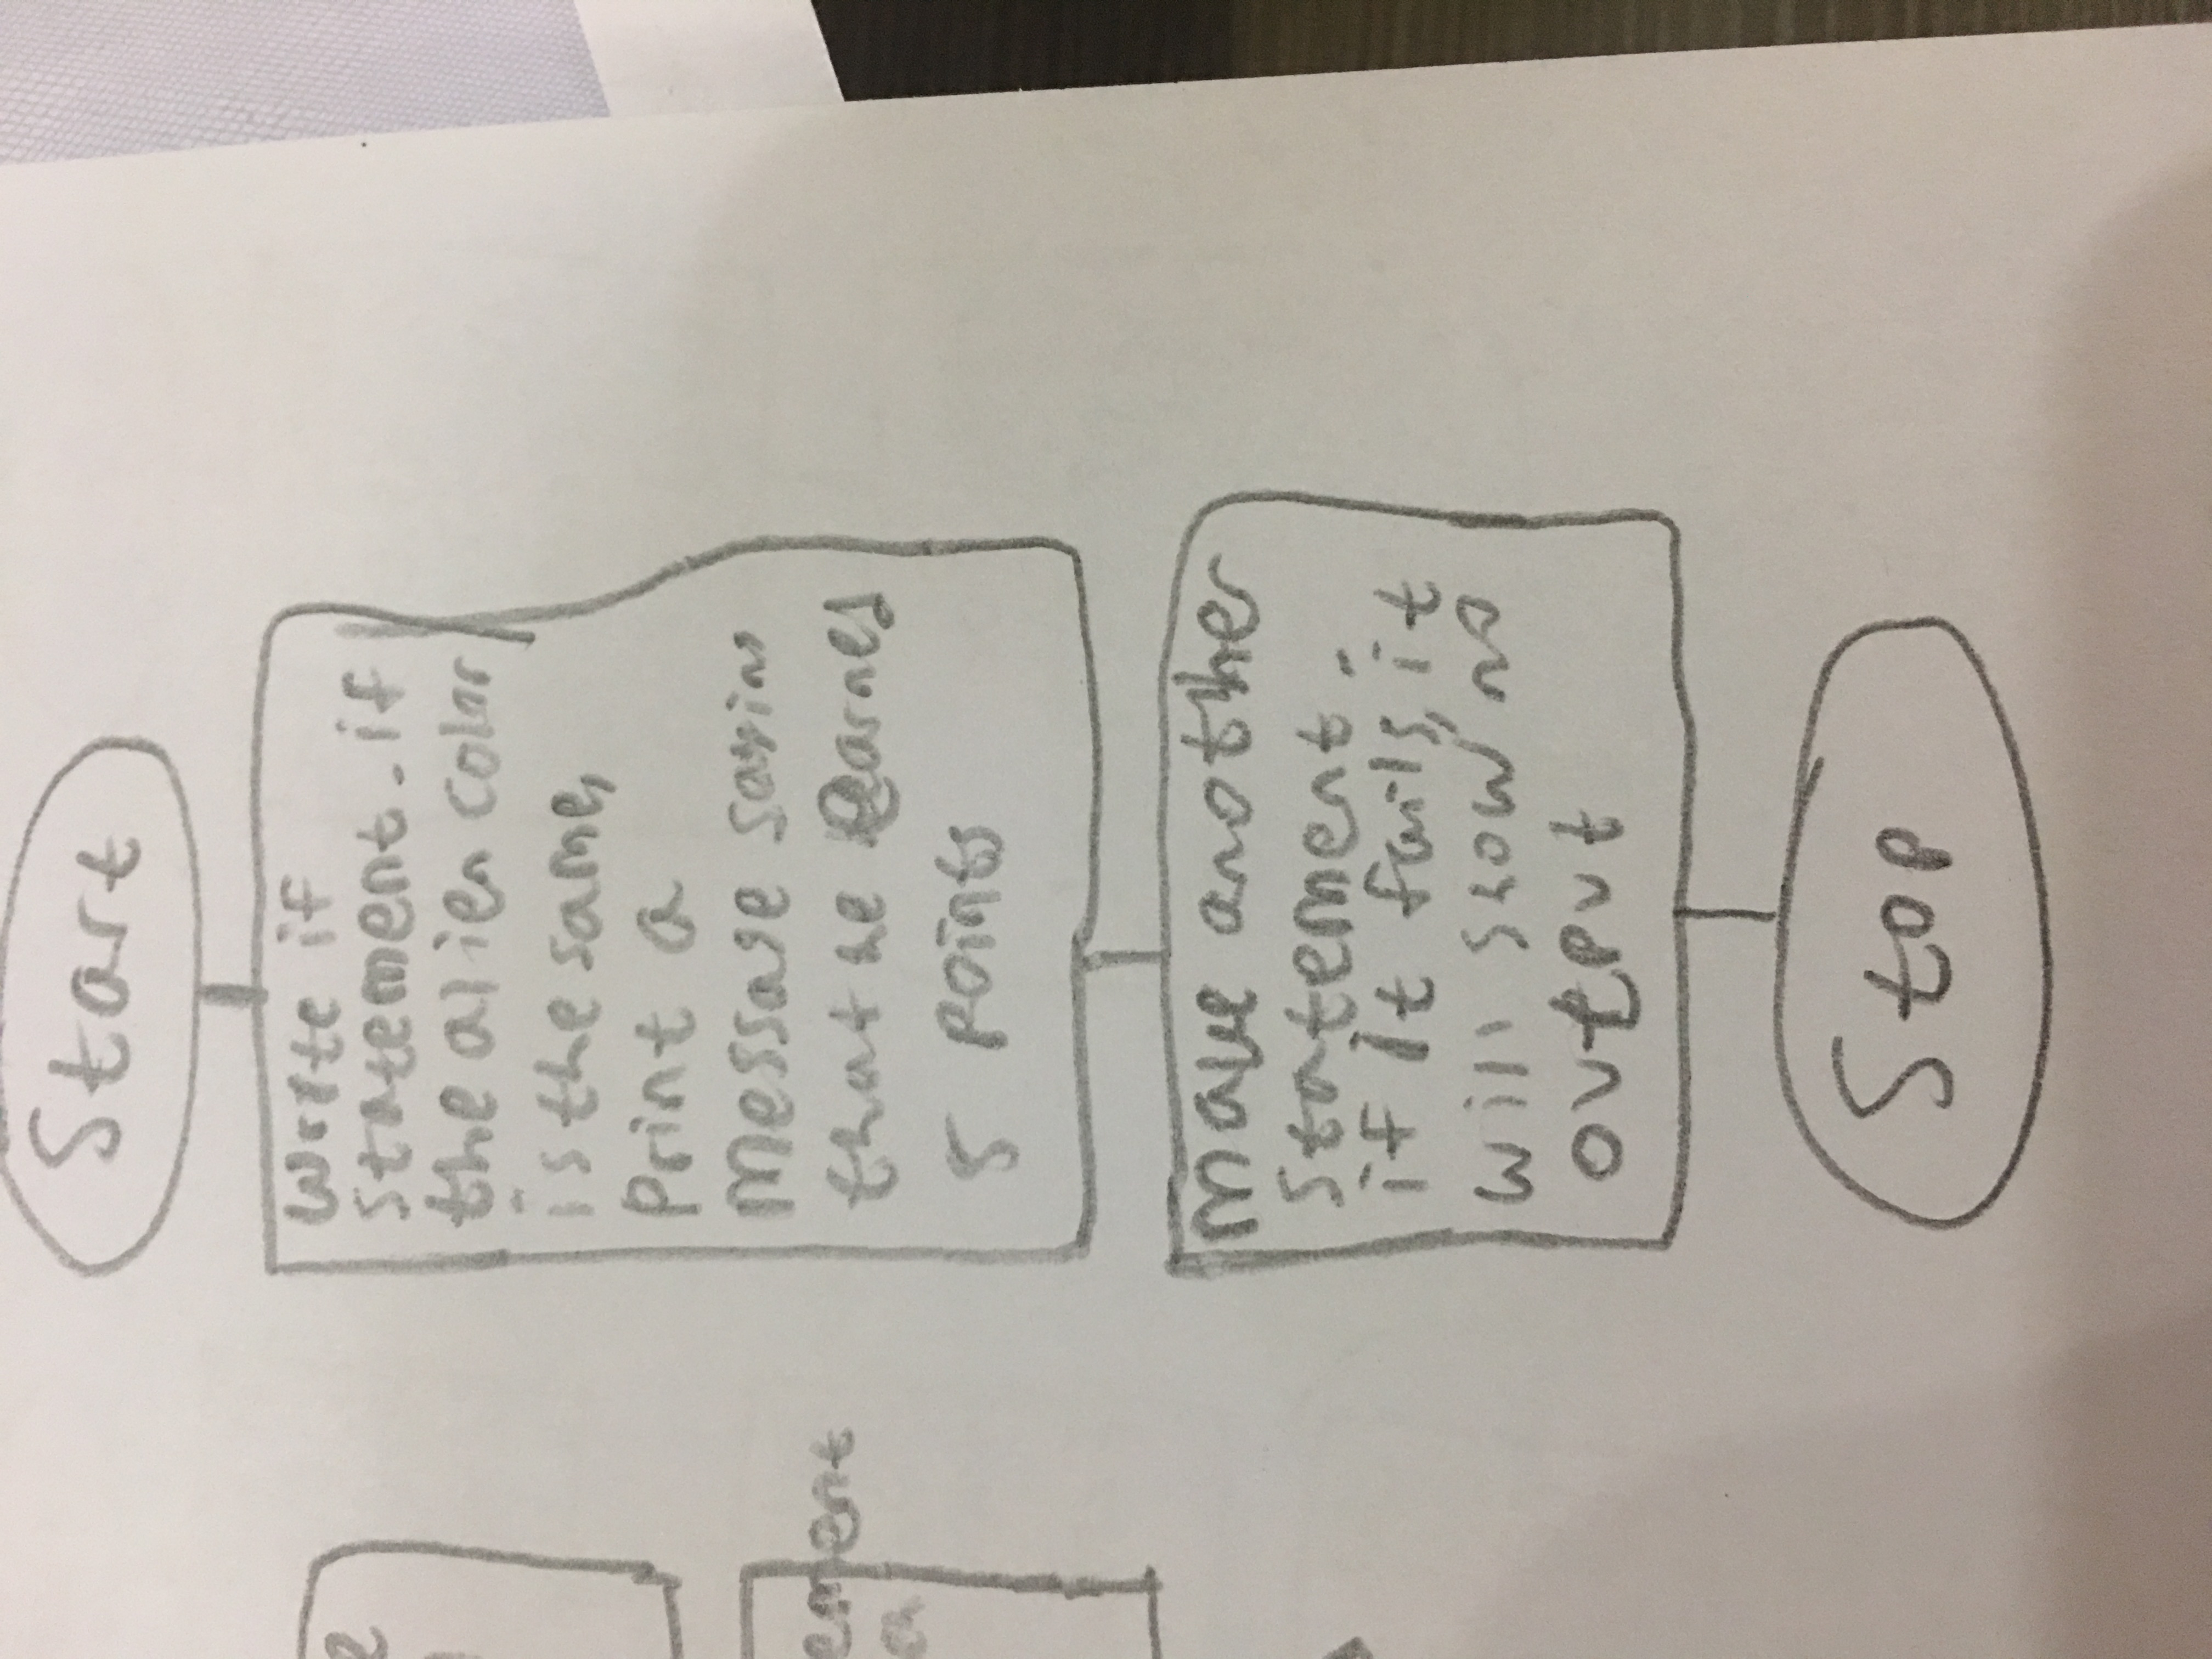 Start
write if
statement. if
the alien color
is the same,
Print a
Message saying
that he earned
5 points
e
ement
make another
statement.
if it fails, it
will show no
output
Stop